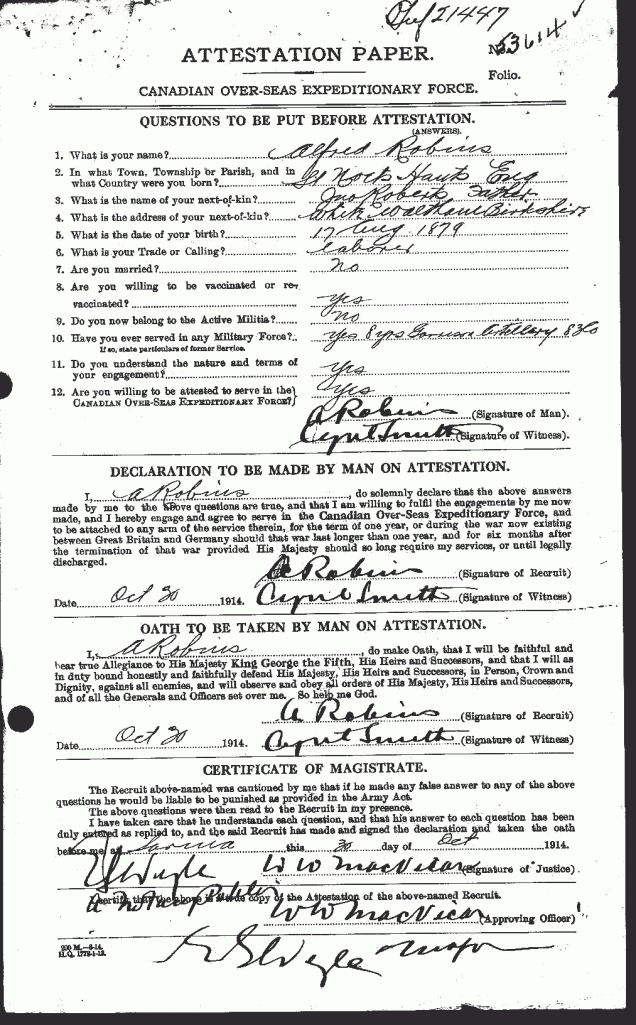 21447
ATTESTATION PAPER.
No. 53614
Folio.
CANADIAN OVER-SEAS EXPEDITIONARY FORCE.
QUESTIONS TO BE PUT BEFORE ATTESTATION.
(ANSWERS).
1. What is your name? Alfred Robins
2. In what Town, Township or Parish, and in
what Country were you born? Eng
3. What is the name of your next-of-kin? Father
4. What is the address of your next-of-kin? White Waltham Berkshire
5. What is the date of your birth? 17 Aug 1879
6. What is your Trade or Calling? labourer
7. Are you married? No
8. Are you willing to be vaccinated or re-
vaccinated? yes
9. Do you now belong to the Active Militia? No
10. Have you ever served in any Military Force? yes 8 yrs Garrison Artillery 83 Co
If so, state particulars of former Service.
11. Do you understand the nature and terms of
your engagement? yes
12. Are you willing to be attested to serve in the
CANADIAN OVER-SEAS EXPEDITIONARY FORCE? yes
A Robins (Signature of Man).
Smith (Signature of Witness).
DECLARATION TO BE MADE BY MAN ON ATTESTATION.
I, A Robins, do solemnly declare that the above answers
made by me to the above questions are true, and that I am willing to fulfil the engagements by me now
made, and I hereby engage and agree to serve in the Canadian Over-Seas Expeditionary Force, and
to be attached to any arm of the service therein, for the term of one year, or during the war now existing
between Great Britain and Germany should that war last longer than one year, and for six months after
the termination of that war provided His Majesty should so long require my services, or until legally
discharged.
A Robins (Signature of Recruit)
Date Oct 30 1914. Smith (Signature of Witness)
OATH TO BE TAKEN BY MAN ON ATTESTATION.
I, A Robins, do make Oath, that I will be faithful and
bear true Allegiance to His Majesty King George the Fifth, His Heirs and Successors, and that I will as
in duty bound honestly and faithfully defend His Majesty, His Heirs and Successors, in Person, Crown and
Dignity, against all enemies, and will observe and obey all orders of His Majesty, His Heirs and Successors,
and of all the Generals and Officers set over me. So help me God.
A Robins (Signature of Recruit)
Date Oct 30 1914. Smith (Signature of Witness)
CERTIFICATE OF MAGISTRATE.
The Recruit above-named was cautioned by me that if he made any false answer to any of the above
questions he would be liable to be punished as provided in the Army Act.
The above questions were then read to the Recruit in my presence.
I have taken care that he understands each question, and that his answer to each question has been
duly entered as replied to, and the said Recruit has made and signed the declaration and taken the oath
before me, at Sarnia this 30 day of Oct 1914.
W W MacVicar (Signature of Justice)
a Notary Public
I certify that the above is a true copy of the Attestation of the above-named Recruit.
W W MacVicar (Approving Officer)
200 M.—8-14.
H.Q. 1772-1-13.
Major